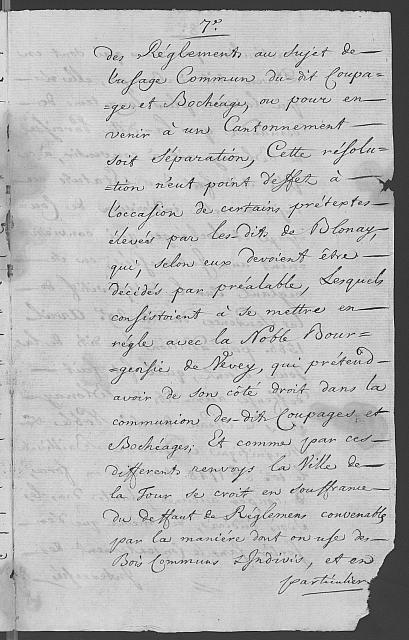 7.e
des Réglements au sujet de
l'usage Commun du-dit Coupa-
ge et Bochéage, ou pour en
venir à un Cantonnement
soit Séparation, Cette résolu-
tion n'eut point d'effet à
l'occasion de certains prétextes
élevés par les-dits de Blonay,
qui, selon eux devoient être
décidés par préalable, Lesquels
consistoient à se mettre en
règle avec la Noble Bour=
=geoisie de Vevey, qui prétend
avoir de son côté droit dans la
communion des-dits Coupages et
Bochéages; Et comme par ces
differents renvoys la Ville de
la Tour se croit en souffrance
du deffaut de Réglemens convenable
par la manière dont on use des
Bois Communs & Indivis, et en
particulier